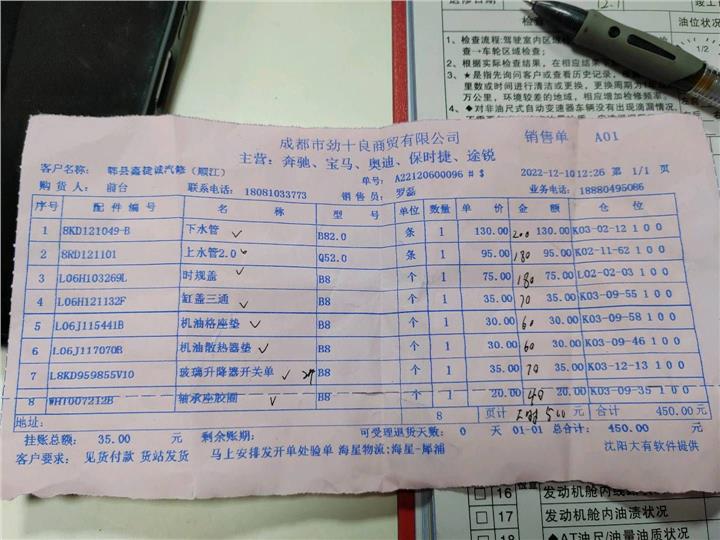 检查
油位状况
1、检查流程:驾驶室内区域
查→车轮区域检查;
2、根据实际检查结果,在相应结果
3、★是指先询问客户或查看历史记录,
里数或时间进行清洁或更换,更换周期为
万公里,环境较差的地域,相应增加检修频率;
4、◆对非油尺式自动变速器车辆没有出现滴漏情况,
成都市劲十良商贸有限公司 销售单 A01
主营:奔驰、宝马、奥迪、保时捷、途锐
客户名称: 郫县鑫捷诚汽修(顺江) 单号: A22120600096 # $ 2022-12-10 12:26 第 1/1 页
购货人: 前台 联系电话: 18081033773 销售员: 罗磊 业务电话: 18880495086
序号 配件编号 名称 型号 单位 数量 单价 金额 仓位
1 8KD121049-B 下水管 B82.0 条 1 130.00 200 130.00 K03-02-12 1 0 0
2 8RD121101 上水管2.0 Q52.0 条 1 95.00 180 95.00 K02-11-62 1 0 0
3 L06H103269L 时规盖 B8 个 1 75.00 180 75.00 L02-02-03 1 0 0
4 L06H121132F 缸盖三通 B8 个 1 35.00 70 35.00 K03-09-55 1 0 0
5 L06J115441B 机油格座垫 B8 个 1 30.00 60 30.00 K03-09-58 1 0 0
6 L06J117070B 机油散热器垫 B8 个 1 30.00 60 30.00 K03-09-46 1 0 0
7 L8KD959855V10 玻璃升降器开关单 B8 个 1 35.00 70 35.00 K03-12-13 1 0 0
8 WHT007212B 轴承座胶圈 B8 个 1 20.00 40 20.00 K03-09-35 1 0 0
地址: 8 页计 500 元 合计 450.00 元
挂账总额: 35.00 元 剩余账期: 可受理退货天数: 0 天 01-01 总合计: 450.00 元
客户要求: 见货付款 货站发货 马上安排发开单处验单 海星物流:海星-犀浦 沈阳大有软件提供
16 发动机舱内线
17 发动机舱内油渍状况
18 ◆AT油尺/油量油质状况